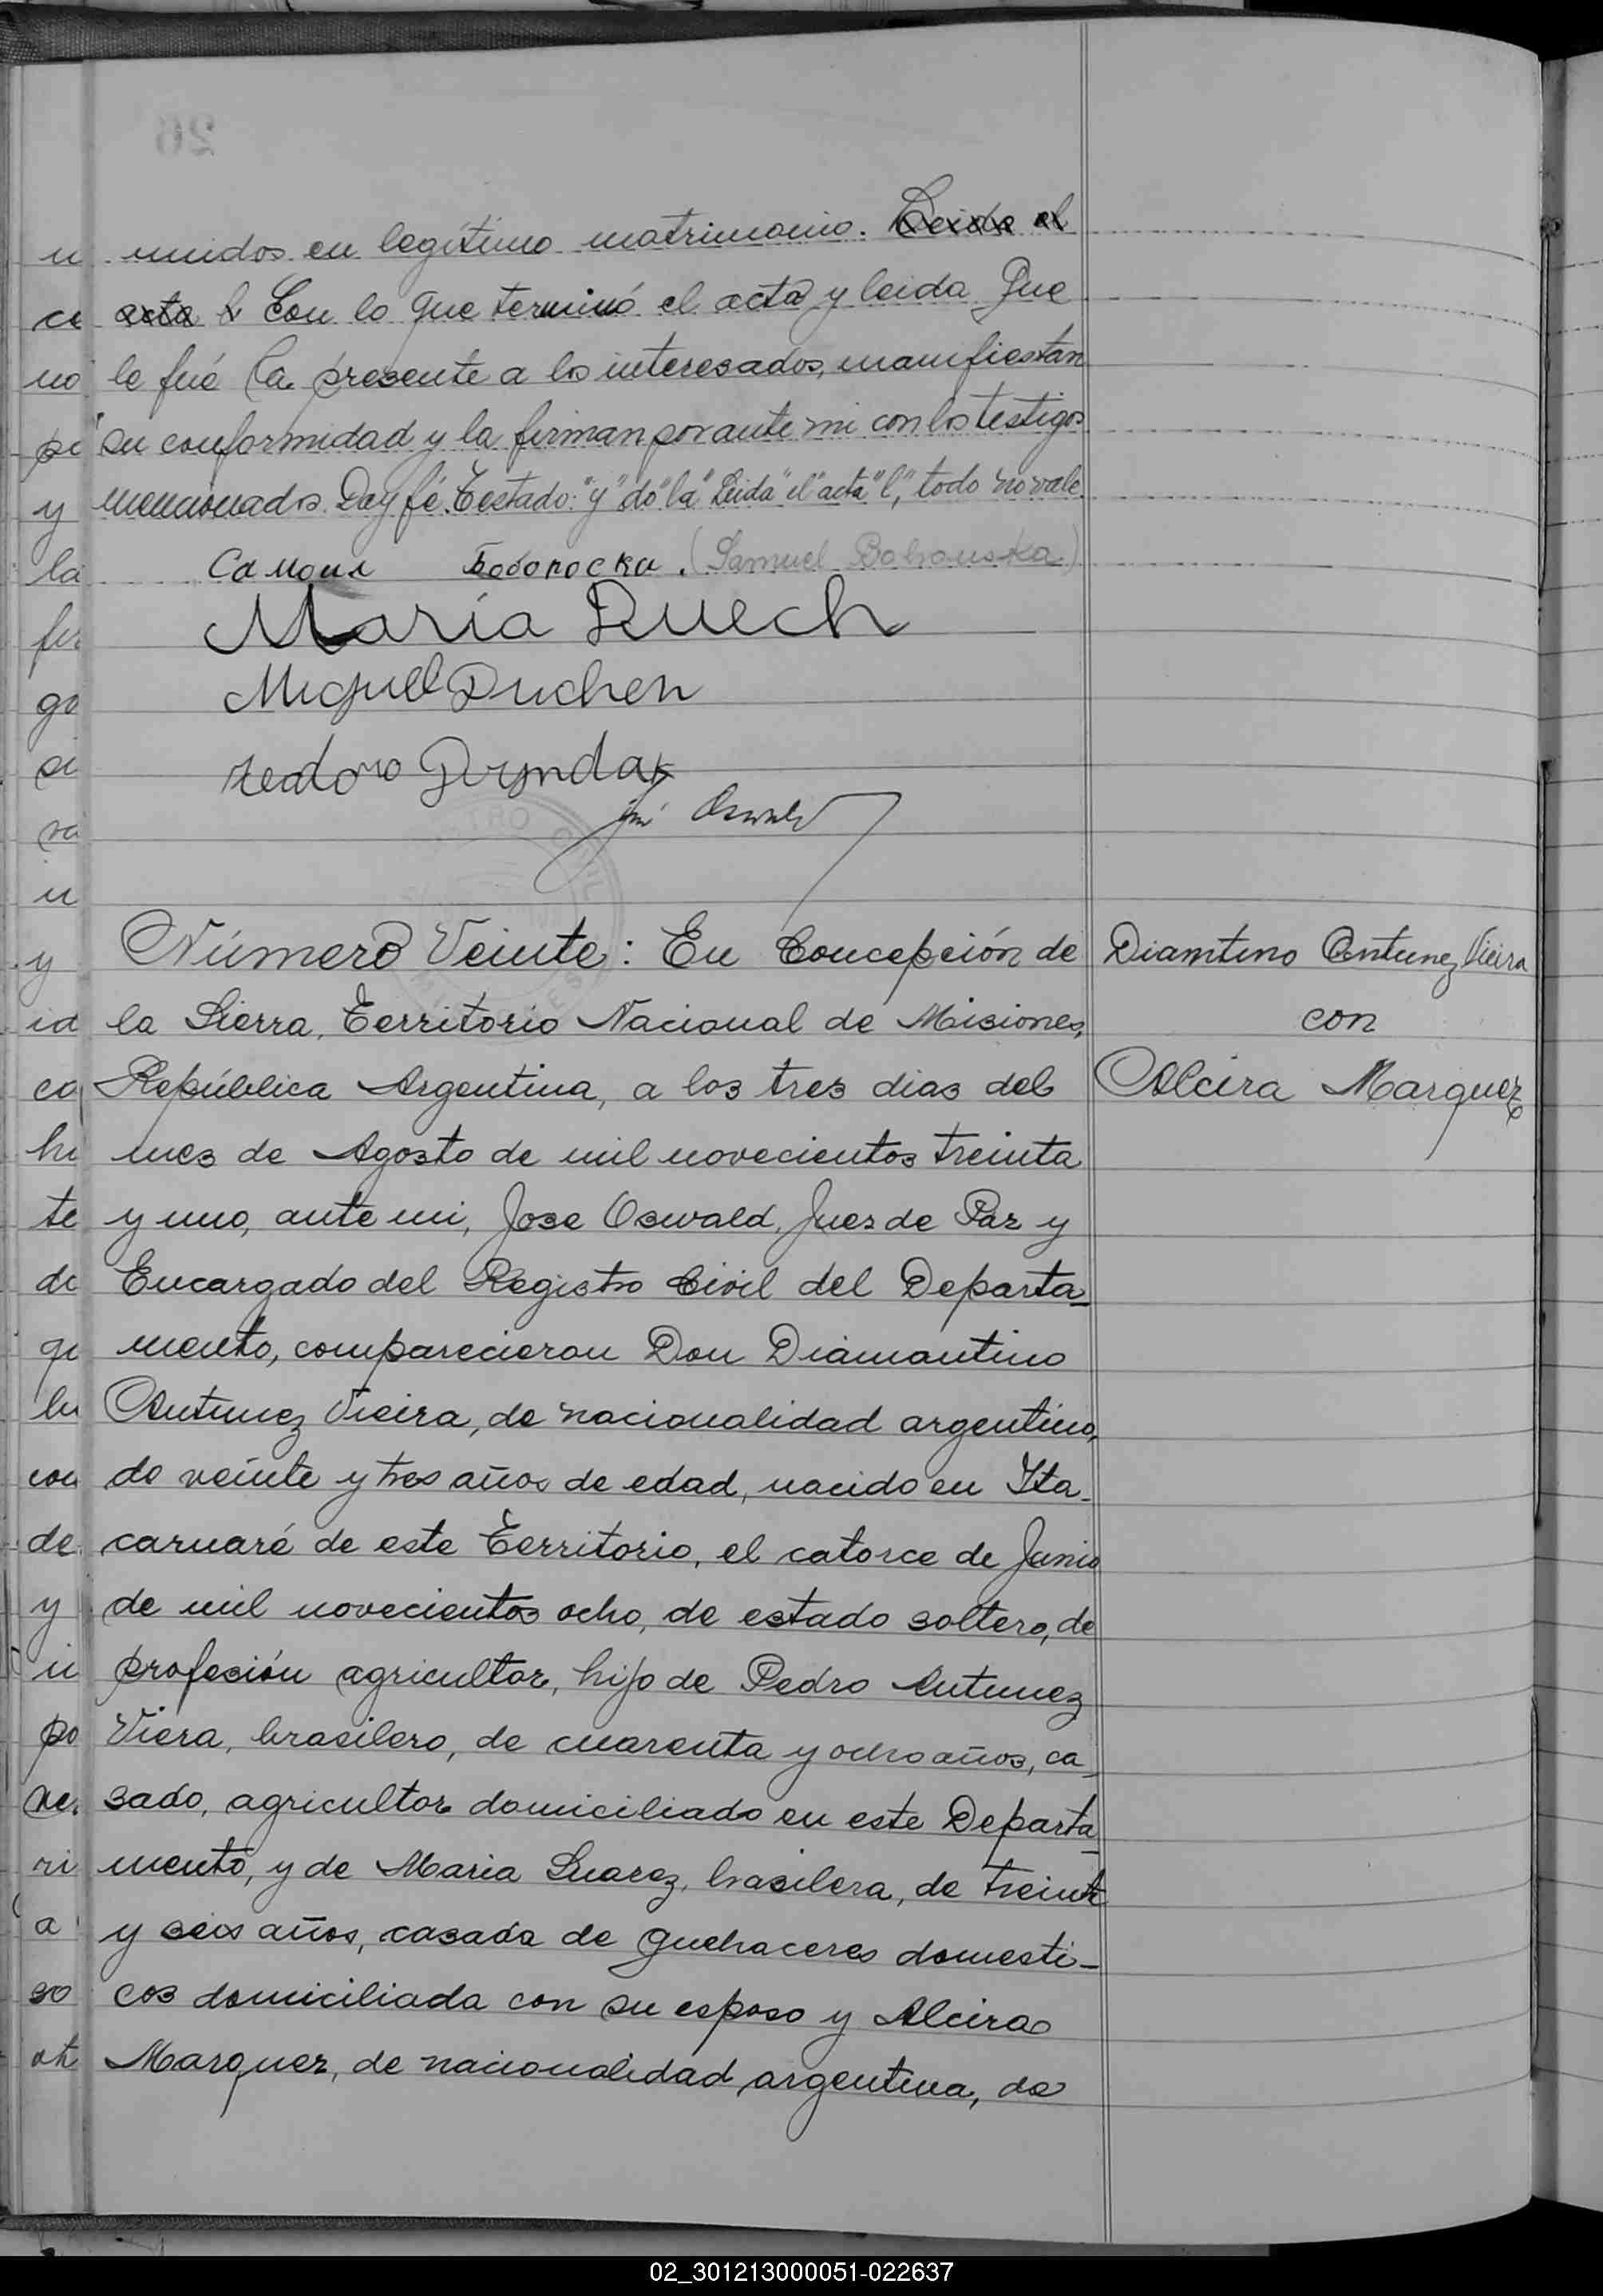 unidos en legítimo matrimonio. Leida el
acta l Con lo que terminó el acta y leida que
le fué la presente a los interesados, manifiestan
su conformidad y la firman por ante mi con los testigos
mencionados. Doy fé. Testado: "y" "do" "la" "Leida" "el" "acta" "l", todo no vale.
(Samuel
Maria Duech
Miguel Duchen
Teodoro
José Oswald
Número Veinte: En Concepción de
la Sierra, Territorio Nacional de Misiones,
República Argentina, a los tres dias del
mes de Agosto de mil novecientos treinta
y uno, ante mi, Jose Oswald, Juez de Paz y
Encargado del Registro Civil del Departa-
mento, comparecieron Don Diamantino
Antunez Vieira, de nacionalidad argentino,
de veinte y tres años de edad, nacido en Ita-
caruaré de este Territorio, el catorce de Junio
de mil novecientos ocho, de estado soltero, de
profesión agricultor, hijo de Pedro Antunez
Viera, brasilero, de cuarenta y ocho años, ca-
sado, agricultor domiciliado en este Departa-
mento, y de Maria Suarez, brasilera, de treinta
y seis años, casada de quehaceres domesti-
cos domiciliada con su esposo y Alcira
Marquez, de nacionalidad argentina, de
Diamtino Antunez Vieira
con
Alcira Marquez
u
ce
no
pi
y
la
fir
go
si
ra
u
y
id
ca
hi
te
de
qu
lu
con
de
y
u
po
ne
ri
a
so
ot
26
02_301213000051-022637